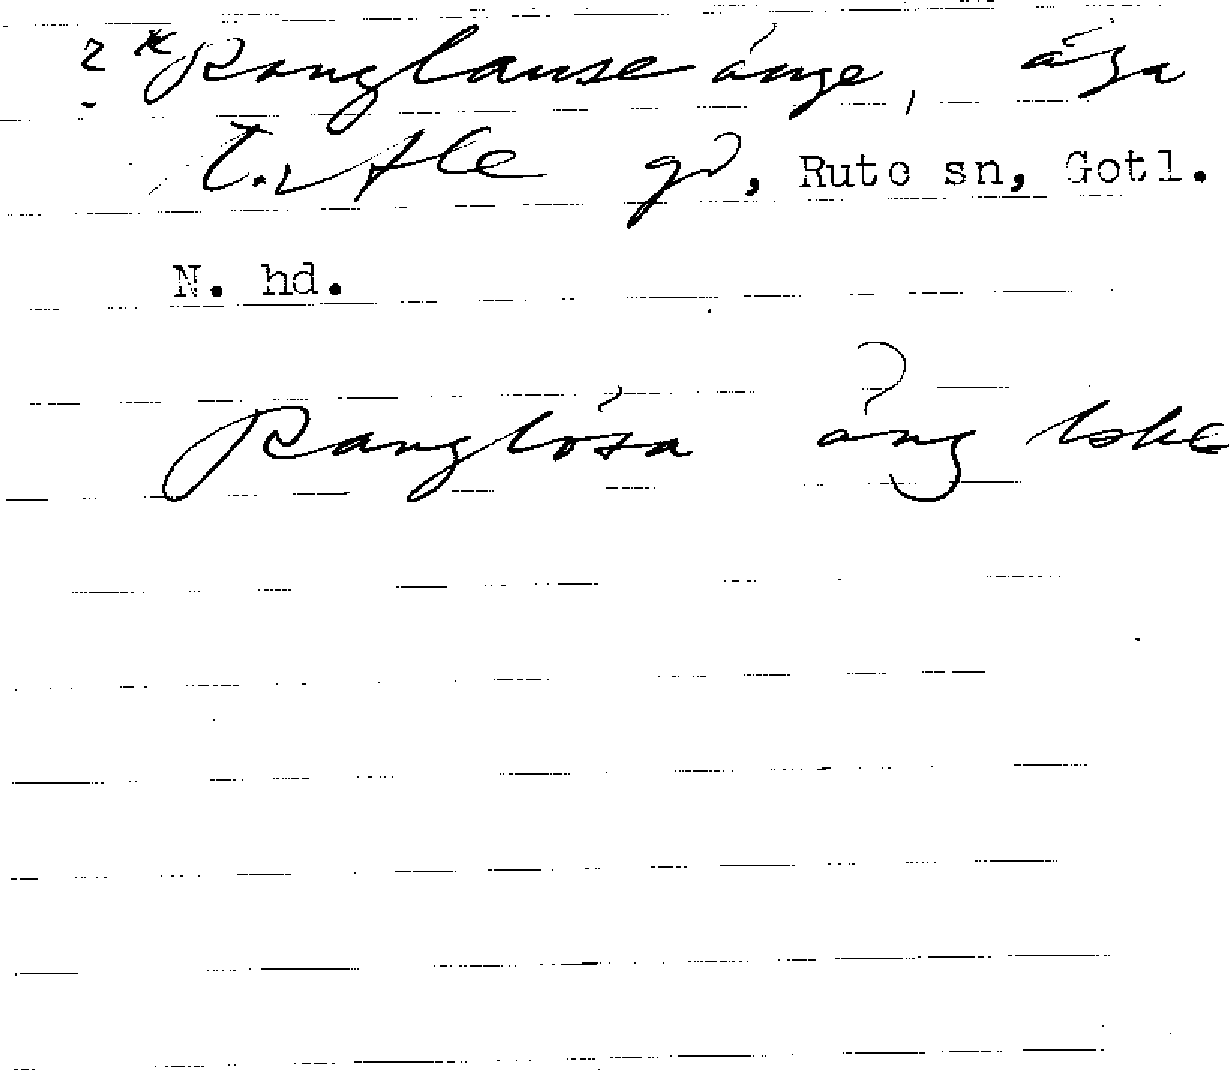 2 * Ranglause änge, äga
T. v Alle gd, Rute sn, Gotl.
N. hd.
Ranglösa äng loke